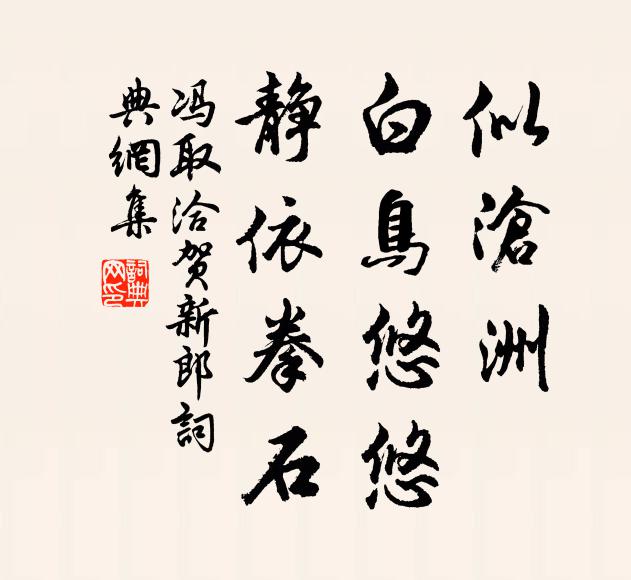 似滄洲
白鳥悠悠
靜依拳石
冯取洽贺新郎詞
典網集
詞典網印